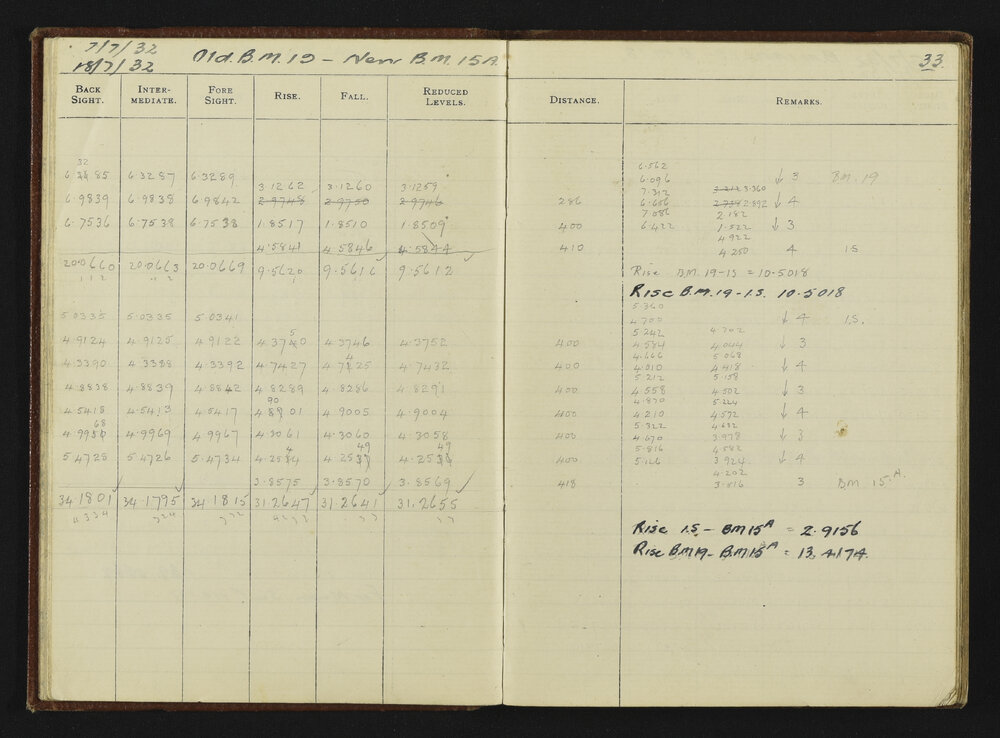 7/7/32
18/7/32 Old. B.M. 19 – New B.M. 15A. 33.
BACK SIGHT. INTER-MEDIATE. FORE SIGHT. RISE. FALL. REDUCED LEVELS. DISTANCE. REMARKS.
32 6.562
85 6.3287 6.3289 6.096 ↓ 3 B.M. 19
3.1262 3.1260 3.1259 7.312 3.360
6.9839 6.9838 6.9842 2.9748 2.9750 2.9746 286 6.656 2.892 ↓ 4
7.086 2.182
6.7536 6.7538 6.7538 1.8517 1.8510 1.8509 400 6.422 1.522 ↓ 3
4.922
4.5841 4.5846 4.5844 410 4.250 4 I.S
20.0660 20.0663 20.0669 9.5620 9.5616 9.5612 Rise B.M. 19–I.S = 10.5018
Rise B.M. 19–I.S. 10.5018
5.360
5.0335 5.0335 5.0341 4.700 ↓ 4 I.S.
5 5.242 4.702
4.9124 4.9125 4.9122 4.3740 4.3746 4.3752 400 4.584 4.044 ↓ 3
4 4.666 5.068
4.3390 4.3388 4.3392 4.7427 4.7825 4.7432 400 4.010 4.418 ↓ 4
5.212 5.158
4.8838 4.8839 4.8842 4.8289 4.8286 4.8291 400 4.558 4.502 ↓ 3
90 4.870 5.224
4.5418 4.5413 4.5417 4.8901 4.9005 4.9004 400 4.210 4.572 ↓ 4
68 5.322 4.632
4.9950 4.9969 4.9967 4.3061 4.3060 4.3058 400 4.670 3.978 ↓ 3
4 49 49 5.816 4.582
5.4728 5.4726 5.4734 400 5.126 3.924 ↓ 4
4.202
3.8575 3.8570 3.8569 418 3.516 3 B.M. 15.A.
34.1801 34.1795 34.1815 31.2647 31.2641 31.2655
Rise I.S – BM15A = 2.9156
Rise B.M19 – B.M15A = 13.4174